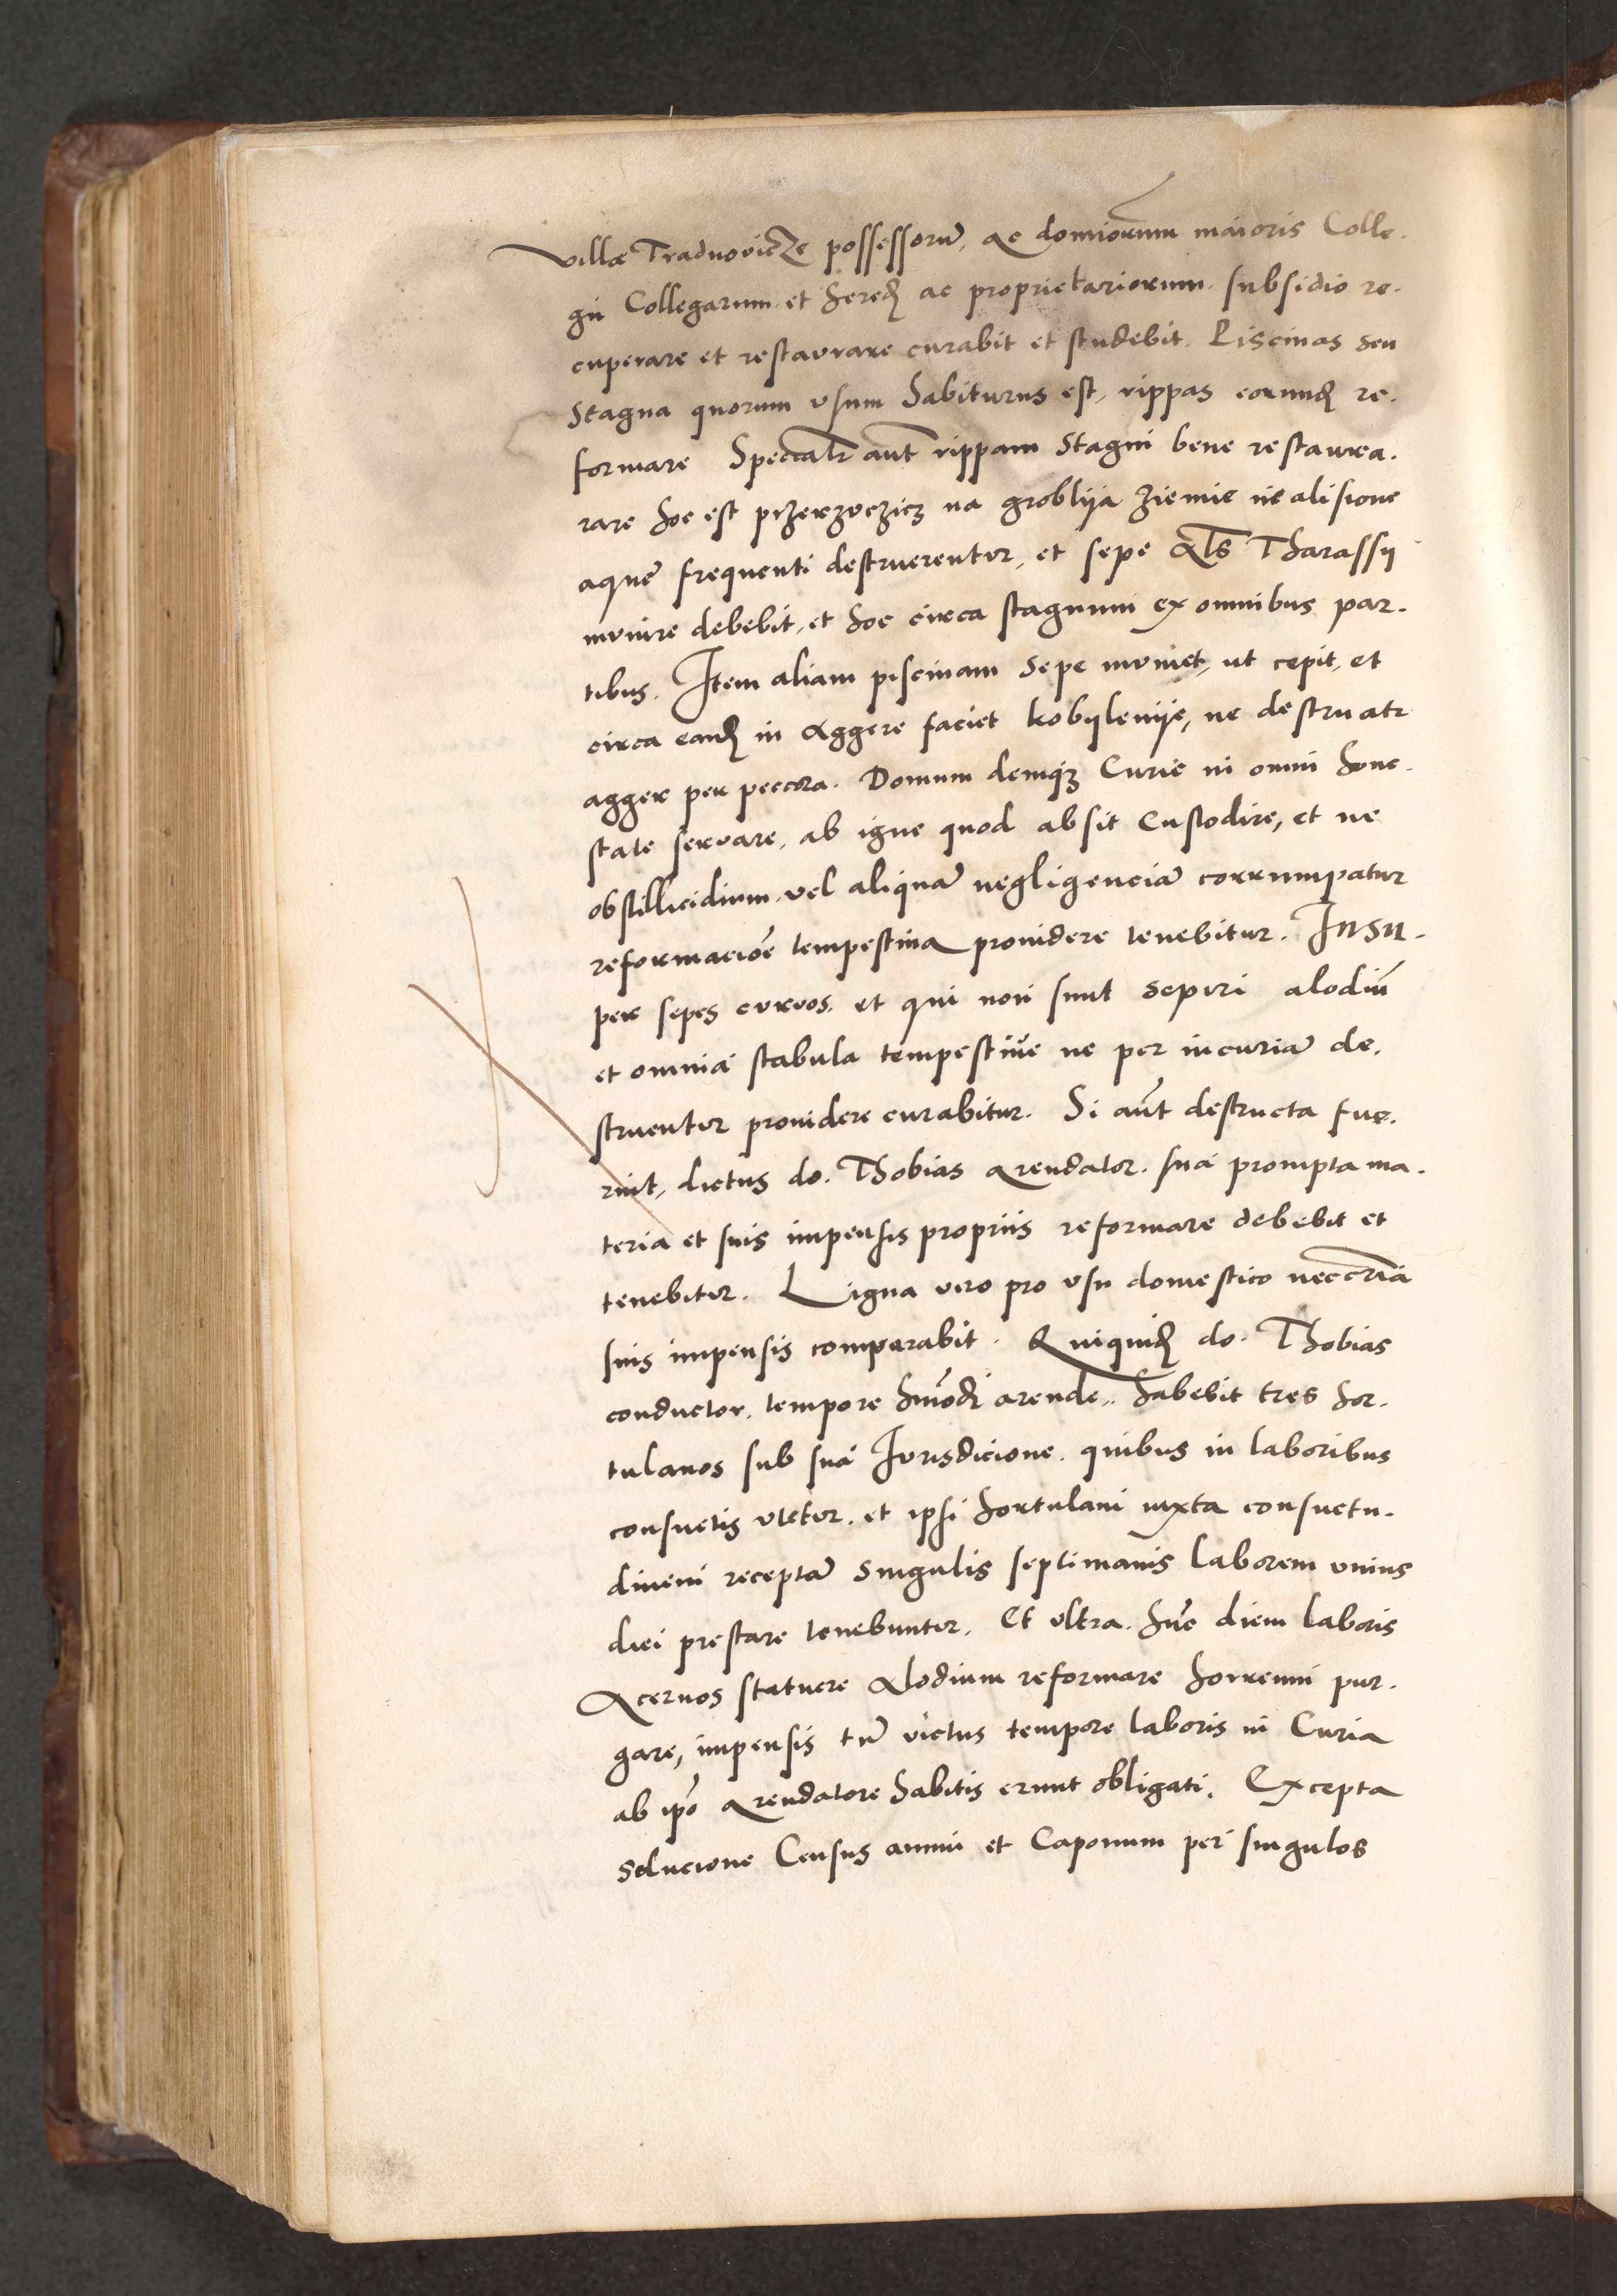 villæ Traduovicze possessorū, ac domīorum maioris Colle-
gii Collegarum et hered̄ ac proprietariorum subsidio re-
cuperare et restaurare curabit et studebit. Piscinas seu
Stagna quorum vsum habiturus est, rippas eorund̄ re-
formare Speccialr̄ aut̄ rippam Stagni bene restaura-
rare hoc est przerzvczicz na groblija ziemie ne alisione
aque frequenti destruerentur, et sepe als̄ Tharassy
munire debebit, et hoc circa stagnum ex omnibus par-
tibus. Item aliam piscinam sepe muniet, ut cepit, et
circa eand̄ in Aggere faciet kobijlenije, ne destruatr
agger per peccora. Domum deniqȝ Curie in omni hone-
state servare, ab igne quod absit Custodire, et ne
ob stillicidium vel aliquā negligenciā corrumpatur
reformaciōe tempestiua prouidere tenebitur. Insu-
per sepes curvos, et qui non sunt sepiri alodiū
et omnia stabula tempestive ne per incuriā de-
struentur prouidere curabitur. Si aūt destructa fue-
rint, dictus do. Thobias arendator sua prompta ma-
teria et suis impensis propriis reformare debebit et
tenebitur. Ligna vero pro vsu domestico neccrīa
suis impensis comparabit. Quiquid̄ do. Thobias
conductor, tempore hmōdi arende, habebit tres hor-
tulanos sub sua Jurisdicione, quibus in laboribus
consuetis vtetur, et ipsi hortulani iuxta consuetu-
dinem receptā singulis septimanis laborem vnius
diei prestare tenebuntur, Et vltra hūc diem laboris
Acervos statuere Alodium reformare horreum pur-
gare, impensis tn̄ victus tempore laboris in Curia
ab ipō Arendatore habitis erunt obligati. Excepta
solucione Census annui et Caponum per singulos